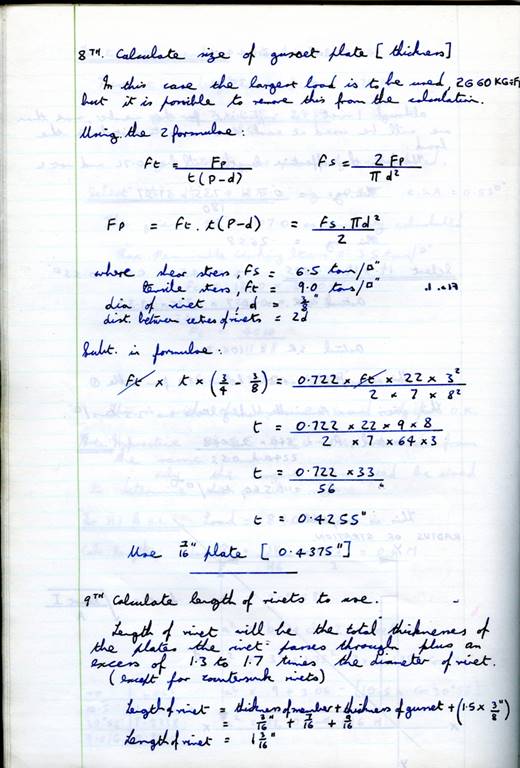 8TH. Calculate size of gusset plate [thickness]
In this case the largest load is to be used, 2660 KG=F
but it is possible to remove this from the calculation.
Using the 2 formulae:
Ft = Fp / t(P-d)    Fs = 2 Fp / πd²
Fp = Ft. t(P-d) = Fs. πd² / 2
where shear stress, Fs = 6.5 tons/□"
tensile stess, Ft = 9.0 tons/□"
dia of rivet, d = 3/8"
dist. between centres of rivets = 2d
Subt. in formulae:
Ft × t × (3/4 - 3/8) = 0.722 × Ft × 22 × 3² / 2 × 7 × 8²
t = 0.722 × 22 × 9 × 8 / 2 × 7 × 64 × 3
t = 0.722 × 33 / 56
t = 0.4255"
Use 7/16" plate [0.4375"]
9TH Calculate length of rivets to use.
Length of rivet will be the total thicknesses of
the plates the rivet passes through plus an
excess of 1.3 to 1.7 times the diameter of rivet.
(except for countersunk rivets)
Length of rivet = thickness of member + thickness of gusset + (1.5 × 3/8")
= 3/16" + 7/16 + 9/16
Length of rivet = 1 3/16"